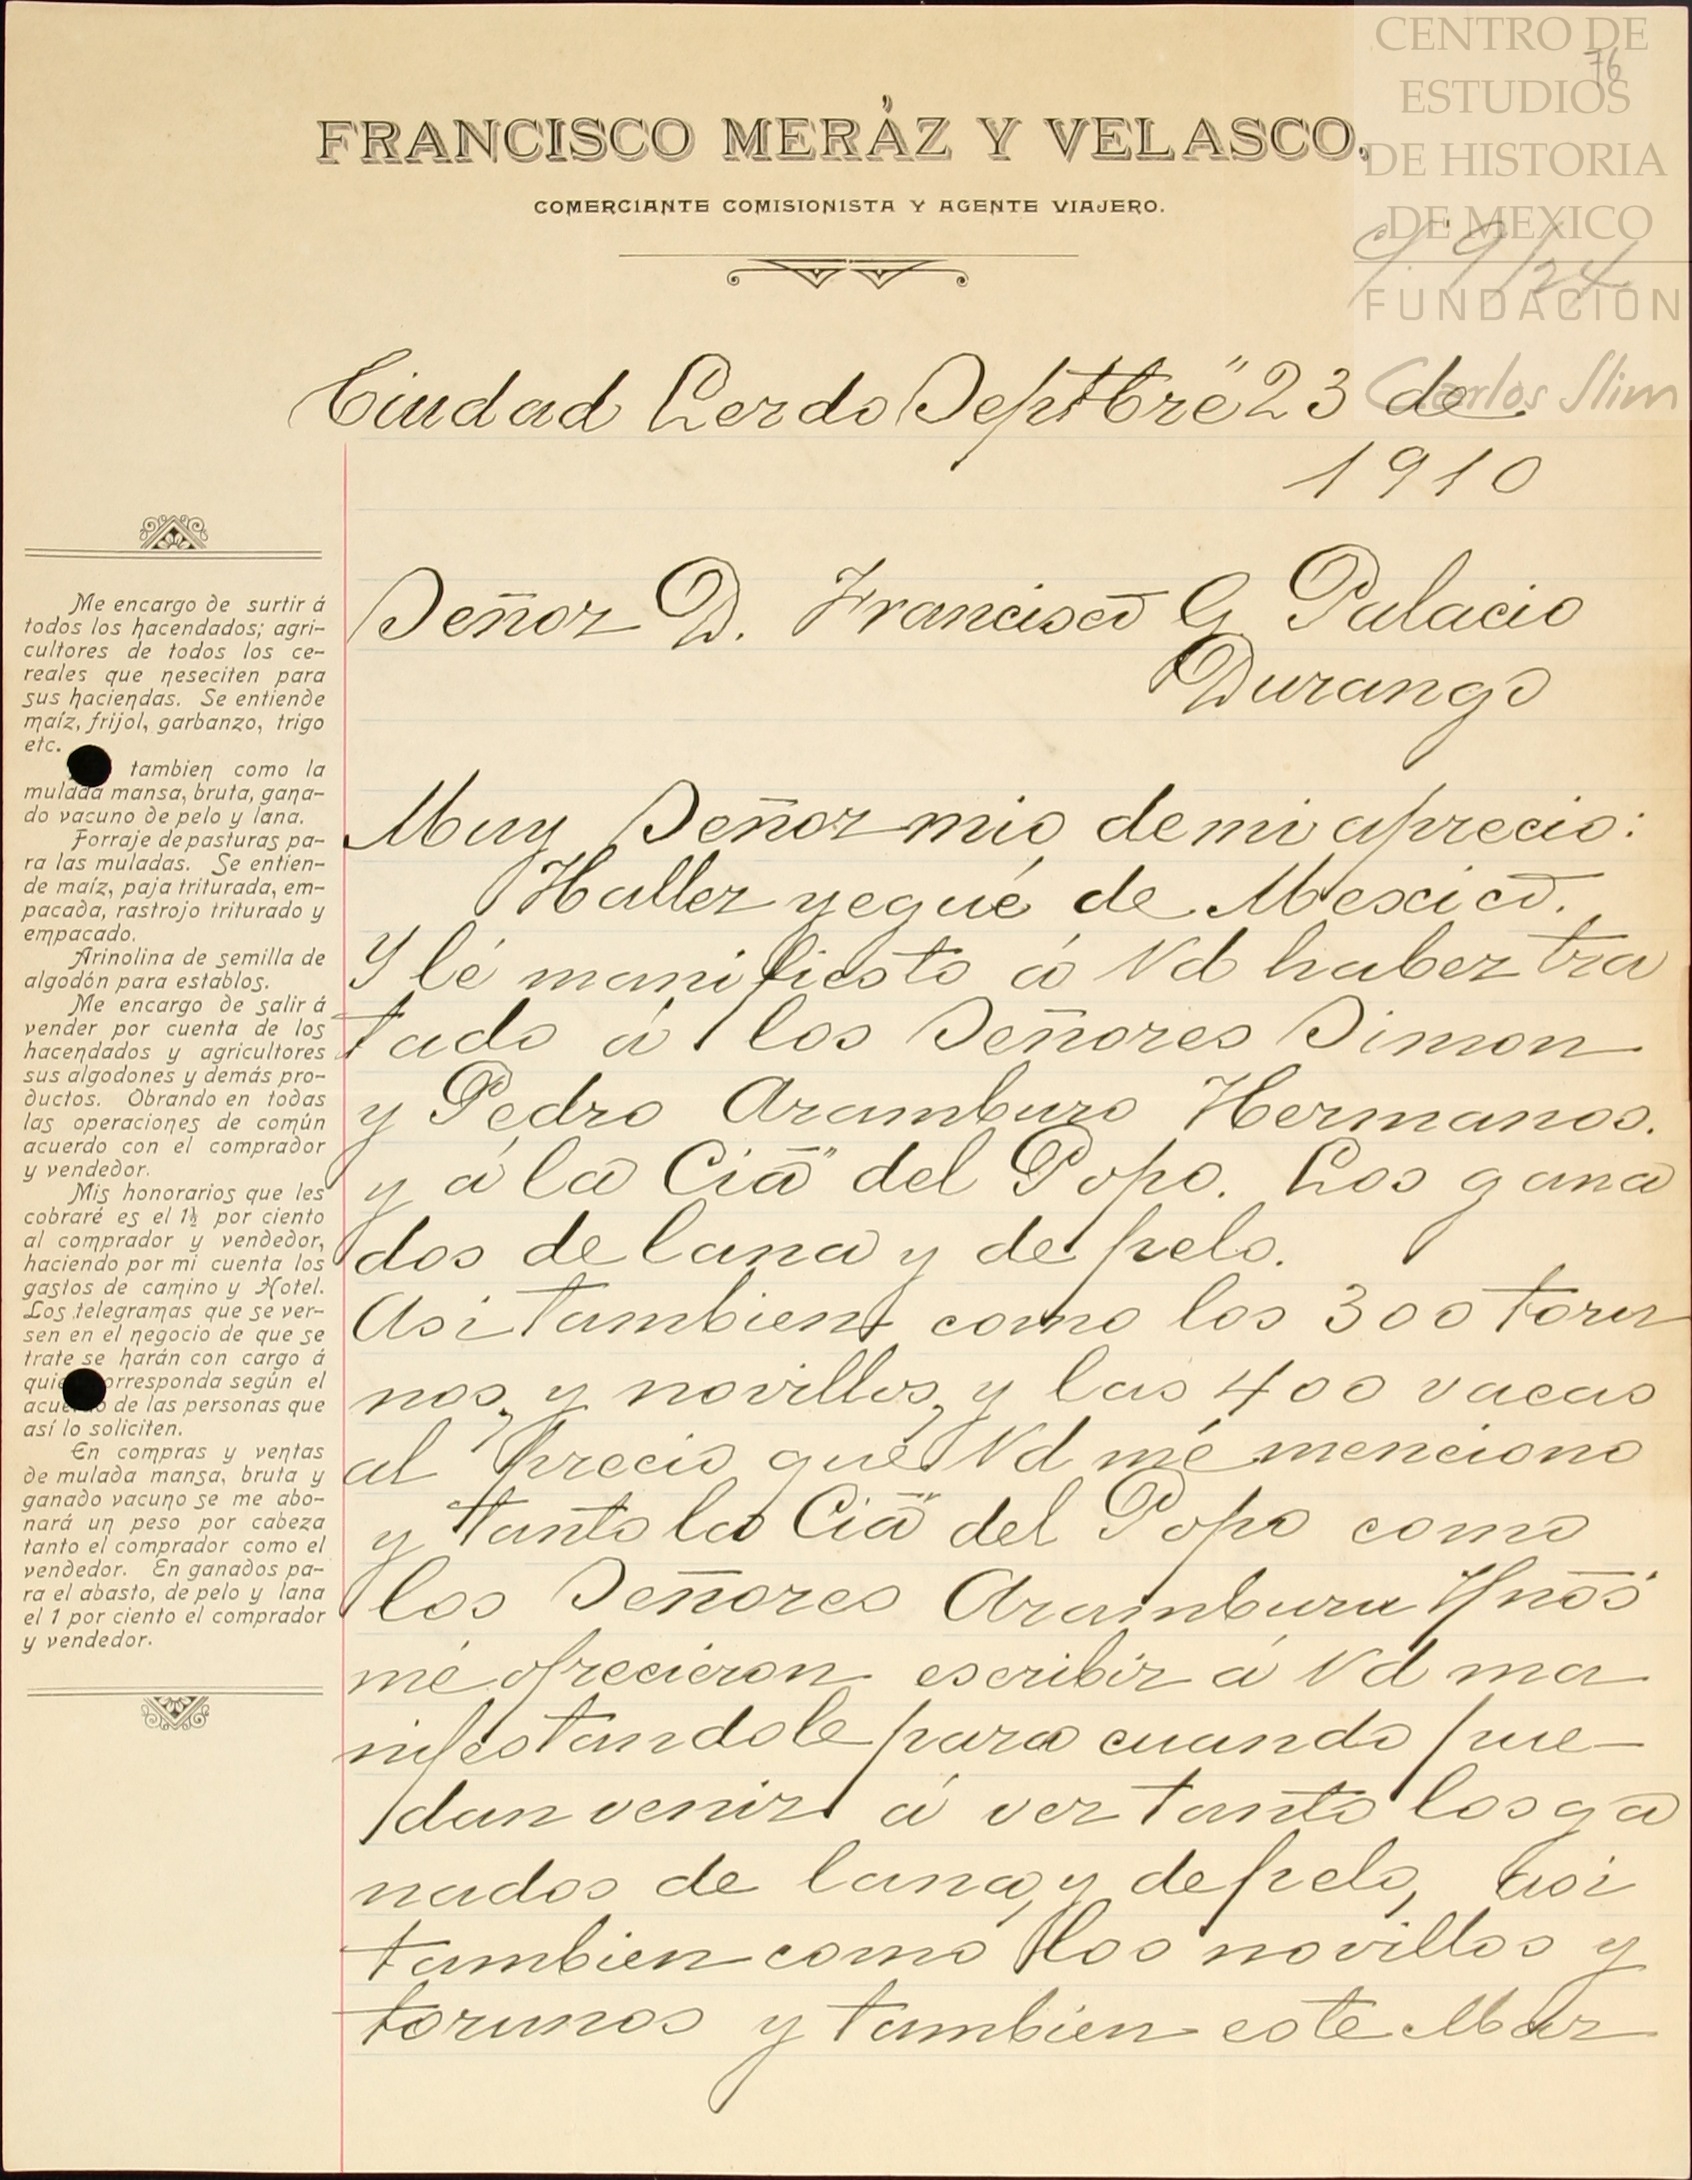 CENTRO DE
ESTUDIOS
DE HISTORIA
DE MEXICO
FUNDACIÓN
Carlos Slim
76
FRANCISCO MERÁZ Y VELASCO.
COMERCIANTE COMISIONISTA Y AGENTE VIAJERO.
Ciudad Lerdo Septbre 23 de
1910
Señor D. Francisco G Palacio
Durango
Me encargo de surtir á
todos los hacendados; agri-
cultores de todos los ce-
reales que neseciten para
sus haciendas. Se entiende
maíz, frijol, garbanzo, trigo
etc.
tambien como la
mulada mansa, bruta, gana-
do vacuno de pelo y lana.
Forraje de pasturas pa-
ra las muladas. Se entien-
de maíz, paja triturada, em-
pacada, rastrojo triturado y
empacado.
Arinolina de semilla de
algodón para establos.
Me encargo de salir á
vender por cuenta de los
hacendados y agricultores
sus algodones y demás pro-
ductos. Obrando en todas
las operaciones de común
acuerdo con el comprador
y vendedor.
Mis honorarios que les
cobraré es el 1½ por ciento
al comprador y vendedor,
haciendo por mi cuenta los
gastos de camino y Hotel.
Los telegramas que se ver-
sen en el negocio de que se
trate se harán con cargo á
quien corresponda según el
acuerdo de las personas que
así lo soliciten.
En compras y ventas
de mulada mansa, bruta y
ganado vacuno se me abo-
nará un peso por cabeza
tanto el comprador como el
vendedor. En ganados pa-
ra el abasto, de pelo y lana
el 1 por ciento el comprador
y vendedor.
Muy Señor mio de mi aprecio:
Haller yegué de Mexico.
Y lé manifiesto á Vd haber tra
tado á los Señores Simon
y Pedro Aramburo Hermanos.
y á la Cia" del Popo. Los gana
dos de lana y de pelo.
Asi tambien como los 300 toru
nos, y novillos, y las 400 vacas
al precio que Vd mé menciono
y tanto la Cia" del Popo como
los Señores Aramburu Hnos
mé ofrecieron escribir á Vd ma
nifestandole para cuando pue-
dan venir á ver tanto los ga
nados de lana, y de pelo, asi
tambien como los novillos y
torunos y tambien este Mar